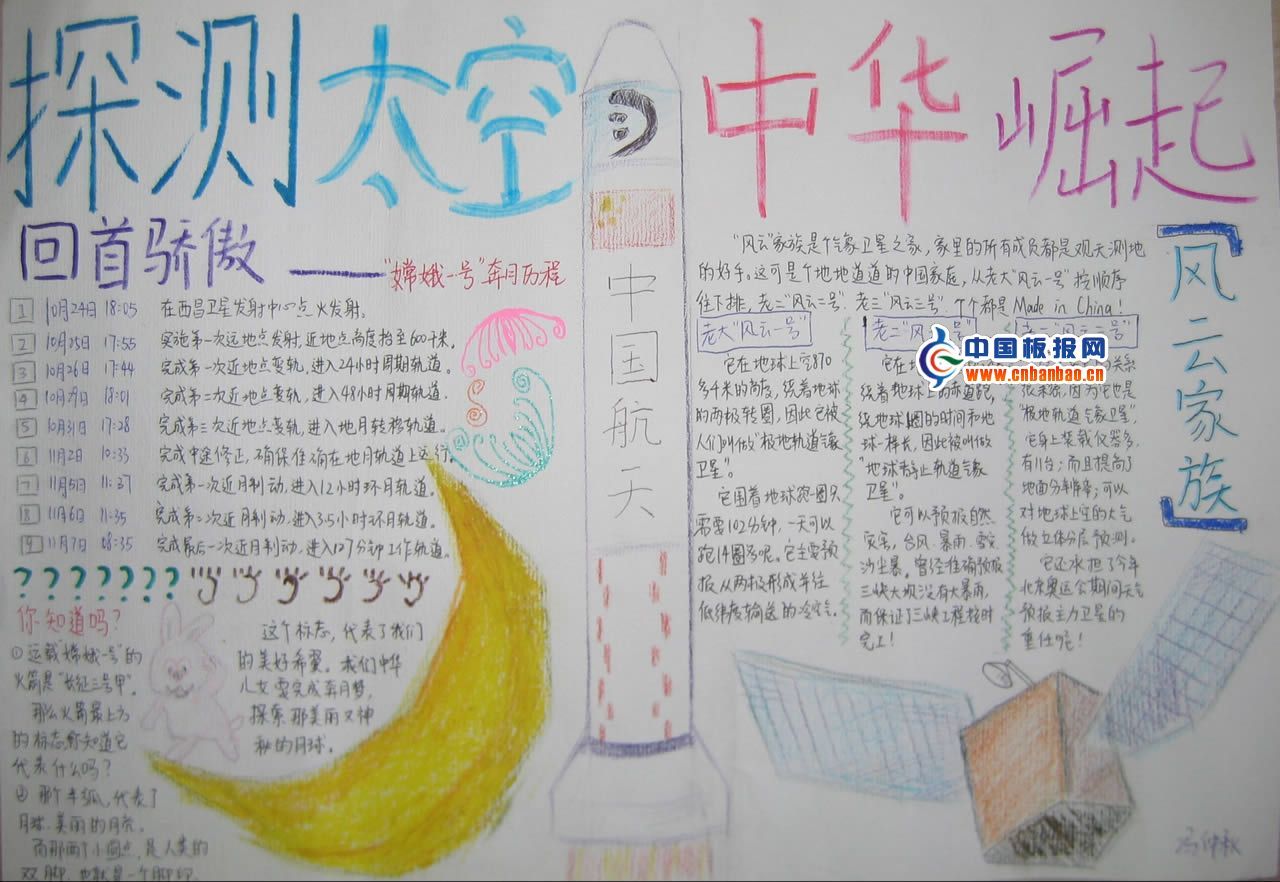 探测太空
中华崛起
回首骄傲
——“嫦娥一号”奔月历程
1 10月24日 18:05 在西昌卫星发射中心点火发射。
2 10月25日 17:55 实施第一次远地点发射,近地点高度抬至600千米。
3 10月26日 17:44 完成第一次近地点变轨,进入24小时周期轨道。
4 10月29日 18:01 完成第二次近地点变轨,进入48小时周期轨道。
5 10月31日 17:28 完成第三次近地点变轨,进入地月转移轨道。
6 11月2日 10:33 完成中途修正,确保准确在地月轨道上运行。
7 11月5日 11:37 完成第一次近月制动,进入12小时环月轨道。
8 11月6日 11:35 完成第二次近月制动,进入3.5小时环月轨道。
9 11月7日 08:35 完成最后一次近月制动,进入127分钟工作轨道。
???????
你知道吗?
①运载“嫦娥一号”的
火箭是“长征三号甲”。
那么火箭最上方
的标志你知道它
代表什么吗?
② 那个半弧,代表了
月球.美丽的月亮。
而那两个小圆点,是人类的
双脚,也就是一个脚印.
这个标志,代表了我们
的美好希望。我们中华
儿女要完成奔月梦,
探索那美丽又神
秘的月球。
中国航天
“风云”家族是个气象卫星之家,家里的所有成员都是观天测地
的好手。这可是个地地道道的中国家庭,从老大“风云一号”按顺序
往下排,老二“风云二号”.老三“风云三号”.个个都是Made in China!
风云家族
老大“风云一号”
它在地球上空870
多千米的高度,绕着地球
的两极转圈,因此它被
人们叫做“极地轨道气象
卫星”。
它围着地球跑一圈只
需要102分钟,一天可以
跑14圈多呢。它主要预
报从两极形成并往
低纬度输送的冷空气。
老二“风云二号”
它在
绕着地球上的赤道跑,
绕地球1圈的时间和地
球一样长,因此被叫做
“地球静止轨道气象
卫星”。
它可以预报自然
灾害,台风.暴雨.雪灾.
沙尘暴。曾经准确预报
三峡大坝没有大暴雨,
而保证了三峡工程按时
完工!
老三“风云三号”
的关系
很亲密,因为它也是
“极地轨道气象卫星”,
它身上装载仪器多,
有11台;而且提高了
地面分辨率;可以
对地球上空的大气
做立体分层预测。
它还承担了今年
北京奥运会期间天气
预报主力卫星的
重任呢!
中国板报网
www.cnbanbao.cn